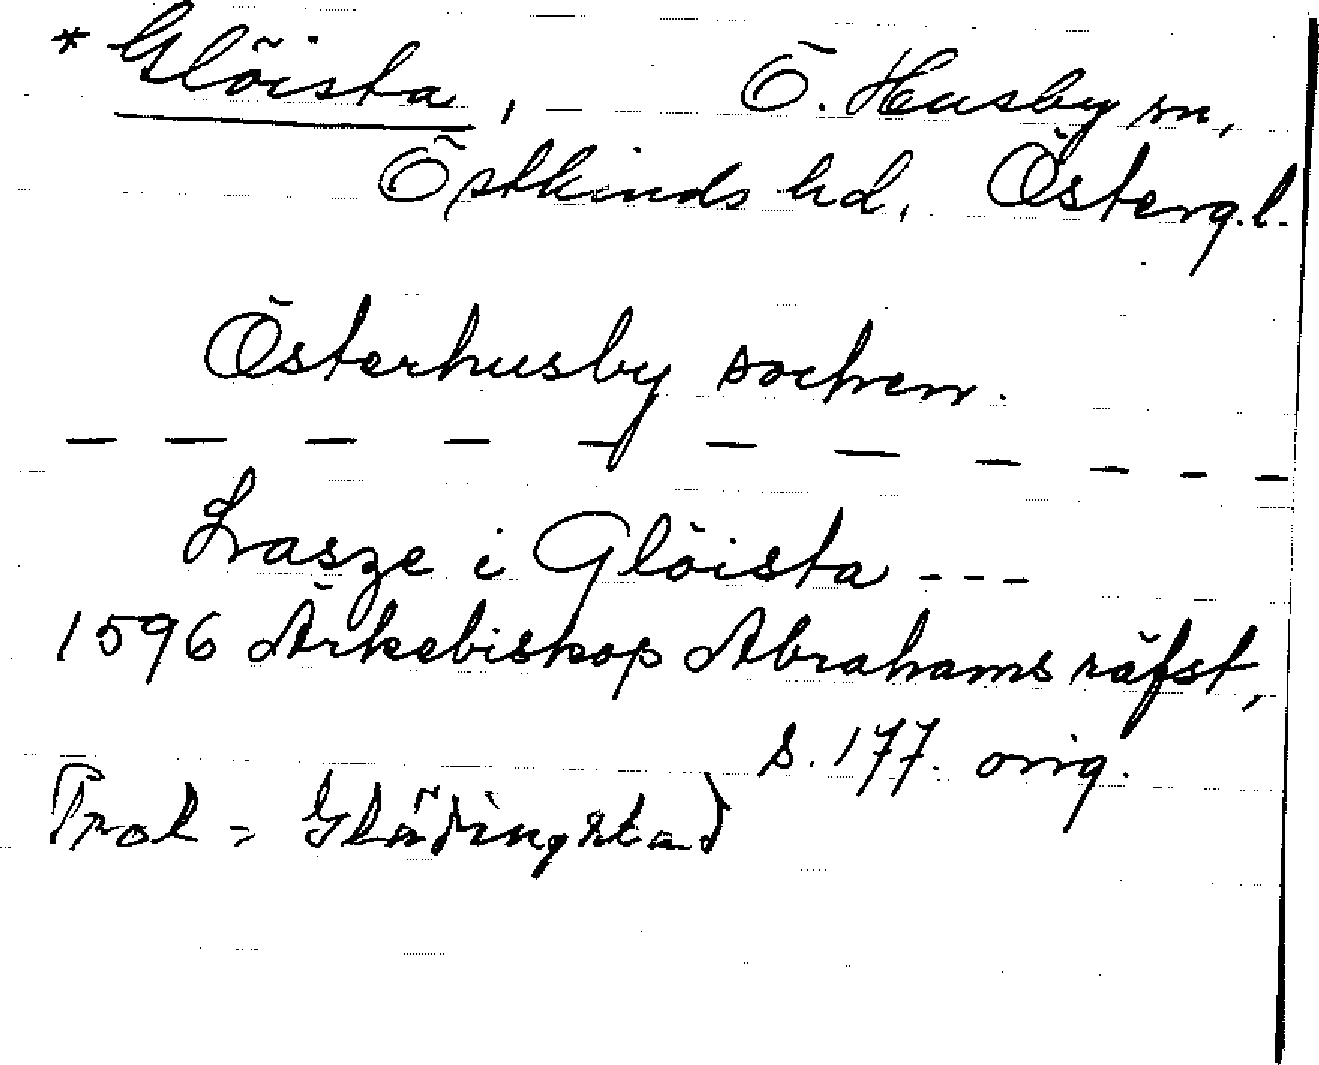 * Glöista, Ö. Husby sn,
Östkinds hd, Österg.l.
Österhusby sochen.
— — — — — — — — — — —
Lasze i Glöista ---
1596 Ärkebiskop Abrahams räfst,
s. 177. orig.
Trol = Glödingstad